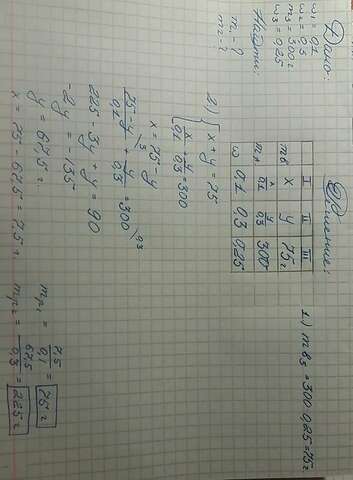 Дано:
ω₁ = 0,1
ω₂ = 0,3
m₃ = 300г
ω₃ = 0,25
Найти:
m₁ - ?
m₂ - ?
Решение:
I II III
mв x y 75г
mр x/0,1 y/0,3 300г
ω 0,1 0,3 0,25
1) mв₃ = 300·0,25 = 75г
2) { x + y = 75
{ x/0,1 + y/0,3 = 300
x = 75 - y
75 - y/0,1 + y/0,3 = 300
225 - 3y + y = 90
-2y = -135
y = 67,5 г.
x = 75 - 67,5 = 7,5 г.
mр₁ = 7,5/0,1 = 75 г
mр₂ = 67,5/0,3 = 225 г